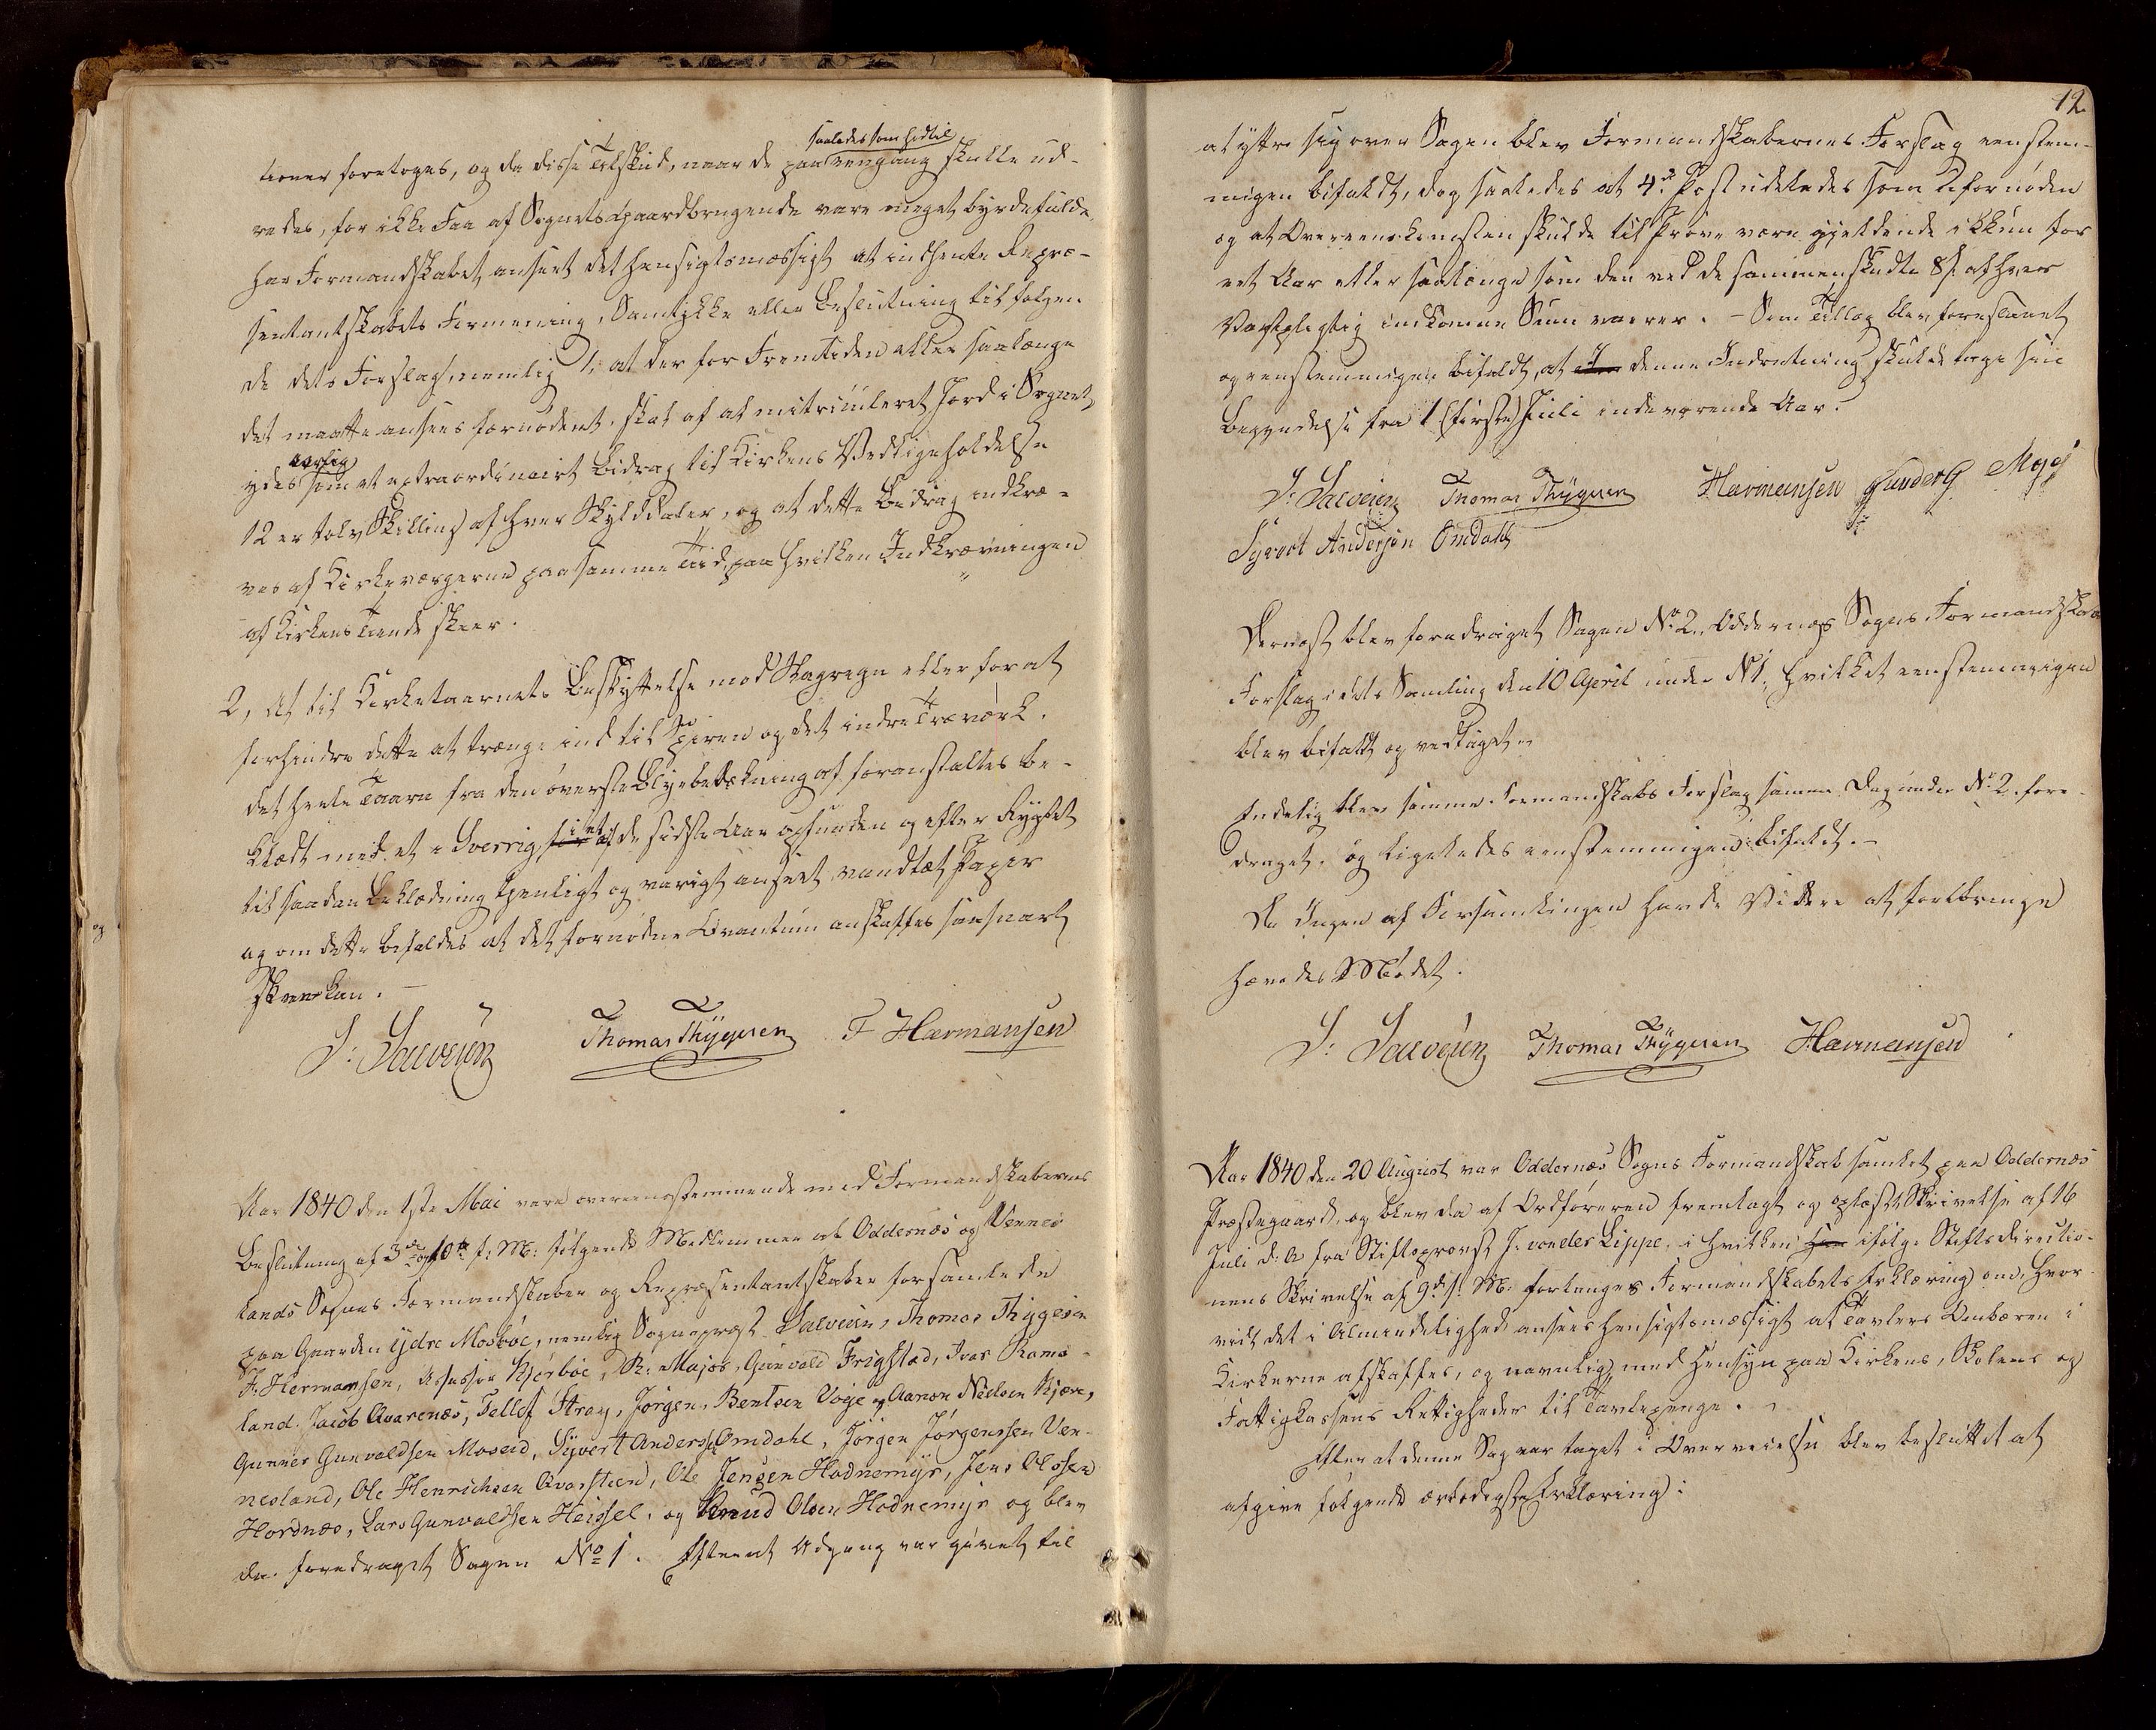 saaledes som hidtil
tioner foretoges, og da disse Tilskud, naar de paa eengang skulle ud-
redes, for ikke Faa af Sognets Gaardbrugende vare meget byrdefulde,
har Formandskabet anseet det hensigtsmæssigt at indhente Repræ-
sentantskabets Formening, Samtykke eller Beslutning til følgen
de dets Forslag, nemlig 1, at der for Fremtiden eller saalænge
det maatte ansees fornødent, skal af al matriculeret Jord i Sognet
aarlig
ydes som et extraordinairt Bidrag til Kirkens Vedligeholdelse
12 er tolv Skilling af hver Skylddaler, og at dette Bidrag indkræ-
ves af Kirkeværgerne paa samme Tiid, paa hvilken Indkrævningen
af Kirkens Tiende skeer.
2, At til Kirketaarnets Beskyttelse mod Slagregn eller for at
forhindre dette at trænge ind til Spiren og det indre Træværk.
det heele Taarn fra den øverste Blyebedækning af foranstaltes be-
klædt med et i Sverrig i et af de sidste Aar opfunden og efter Rygtet
til saadan Beklædning tjenligt og varigt anseet vandtæt Papir
og om dette bifaldes at det fornødne Qvantum anskaffes saasnart
skee kan. –
S: Salvesen Thomas Thygesen F Hermansen
Aar 1840 den 1ste Mai vare overeensstemmende med Formandskabernes
Beslutning af 3die og 10de f: M: følgende Medlemmer af Oddernæs og Vennes
lands Sognes Formandskaber og Repræsentantskaber forsamlede
paa Gaarden ydre Mosbøe, nemlig Sognepræst Salvesen, Thomas Thygesen
F: Hermansen, Assessor Kjerbøe, R: Major, Gunvald Frigstad, Ivar Rams-
land, Jacob Qvarenæs, Tellef Stray, Jørgen Bentsen Voje og Aanon Nielsen Kjære,
Gunner Gunvaldsen Moseid, Syvert Anders: Omdahl, Jørgen Jørgensen Ven-
nesland, Ole Henrichsen Qvarstien, Ole Jensen Hodnemyr, Jens Olsen
Hordnæs, Lars Gunvaldsen Heissel, og Knud Olsen Hodnemyr og blev
da foredraget Sagen No 1. Efterat Adgang var givet til
12
at yttre sig over Sagen blev Formandskabernes Forslag eenstem-
migen bifaldt, dog saaledes at 4de Post udelades som ufornøden
og at Overeenskomsten skulde til Prøve være gjeldende ikkun for
eet Aar eller saalænge som den ved de sammenskudte 8 s. af hver
indkomne Sum varer. – Som Tillæg blev foreslaaet
og eenstemmigen bifaldt, at denne Indretning skulde tage sin
Begyndelse fra 1 (første) Juli indeværende Aar.
S: Salvesen Thomas Thygesen Hermansen
Syvert Andersen Omdahl
Dernæst blev foredraget Sagen No 2, Oddernæs Sogns Formandskabs
Forslag i dets Samling den 10 April under No 1, hvilket eenstemmigen
blev bifaldt og vedtaget.
Endelig blev samme Formandskabs Forslag samme Dag under No 2. fore-
draget, og ligeledes eenstemmigen bifaldt. –
Da Ingen af Forsamlingen havde Videre at fortbringe
hævedes Mødet.
S: Salvesen Thomas Thygesen Hermansen
Aar 1840 den 20 August var Oddernæs Sogns Formandskab samlet paa Oddernæs
Præstegaard, og blev da af Ordføreren fremlagt og oplæst Skrivelse af 16
Juli d: A fra Stiftsprovst J. von der Lippe, i hvilken ifølge Stiftsdirectio-
nens Skrivelse af 9de s: M: forlanges Formandskabets Erklæring om, hvor-
vidt det i Almindelighed ansees hensigtsmæssigt at Tavlers Ombæren i
Kirkerne afskaffes, og navnlig med Hensyn paa Kirkens, Skolens og
Fattigkassens Rettigheder til Tavlepenge.
Efter at denne Sag var taget i Overveielse blev besluttet at
afgive følgende ærbødigste Erklæring: